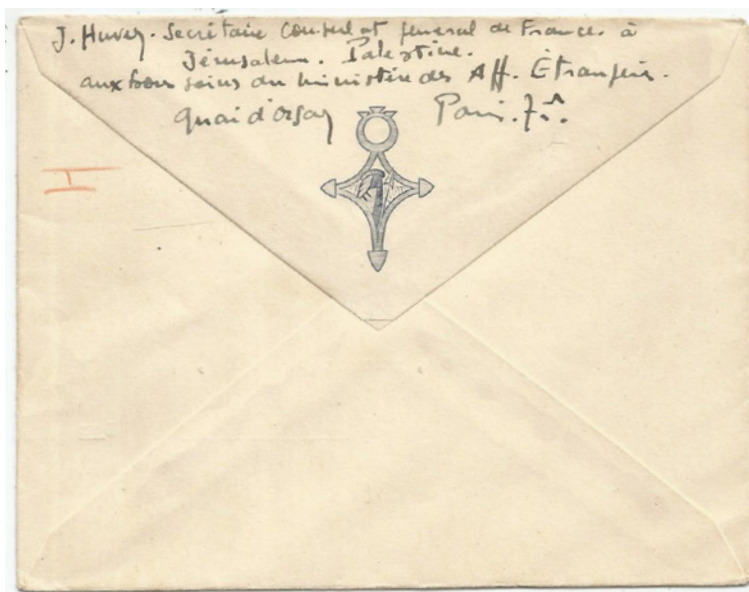 J. Huvey. Secrétaire Consulat général de France à
Jérusalem. Palestine.
aux bons soins du Ministère des Aff. Étrangèr.
Quai d'Orsay Paris. 7è.
I